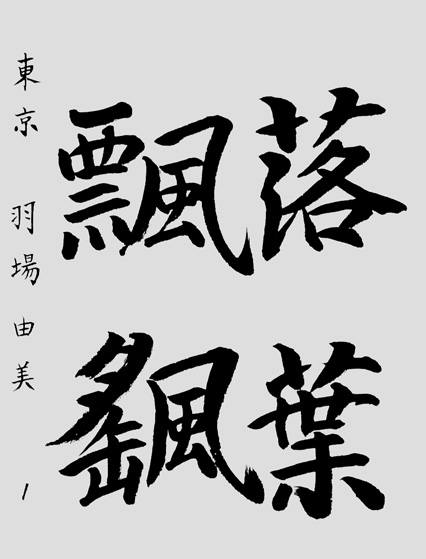 落葉
飄颻
東京 羽場由美